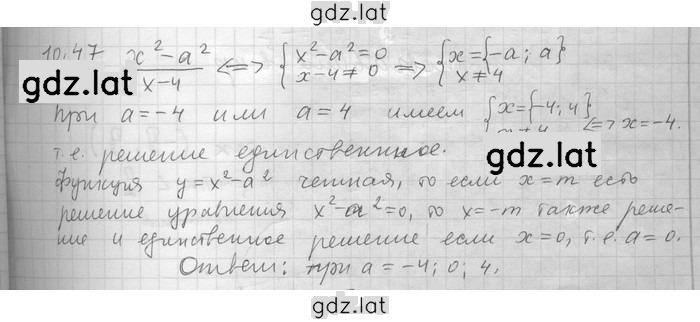 gdz.lat
10.47 x²-a²/x-4 <=> {x²-a²=0 x-4≠0 => {x={-a; a} x≠4
gdz.lat
при a=-4 или a=4 имеем {x={-4; 4} x≠4 <=> x=-4.
т.е. решение единственное.
gdz.lat
функция y=x²-a² четная, то если x=m есть
решение уравнения x²-a²=0, то x=-m также реше-
ние и единственное решение если x=0, т.е. a=0.
Ответ: при a=-4; 0; 4.
gdz.lat